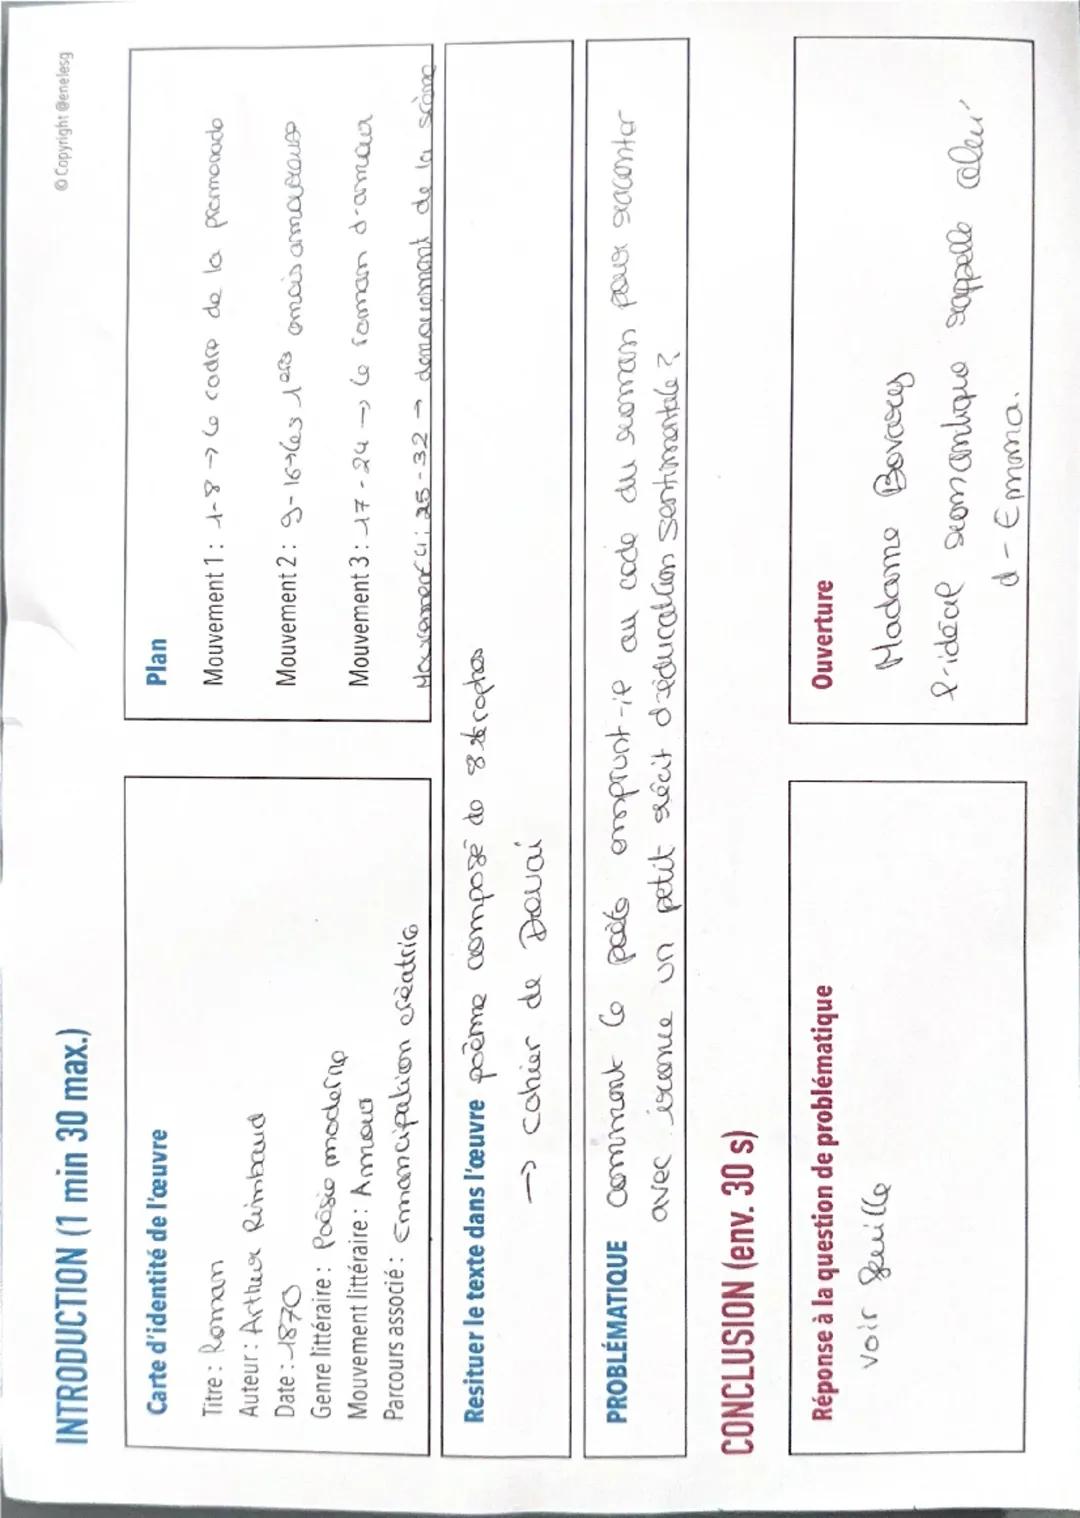 © Copyright @enelesg
INTRODUCTION (1 min 30 max.)
Carte d'identité de l'œuvre
Titre : Roman
Auteur : Arthur Rimbaud
Date : 1870
Genre littéraire : Poésie moderne
Mouvement littéraire : Amour
Parcours associé : Emancipation créatric
Plan
Mouvement 1 : 1-8 → le cadre de la promenade
Mouvement 2 : 9-16 → les 1ers émois amoureux
Mouvement 3 : 17-24 → le roman d'amour
Mouvement 4 : 25-32 → denouement de la scène
Resituer le texte dans l'œuvre poème composé de 8 strophes
→ cahier de Douai
PROBLÉMATIQUE Comment le poète emprunt-il au code du roman pour raconter
avec ironie un petit récit d'éducation sentimentale ?
CONCLUSION (env. 30 s)
Réponse à la question de problématique
voir feuille
Ouverture
Madame Bovary
l'idéal romantique rappelle celui
d'Emma.